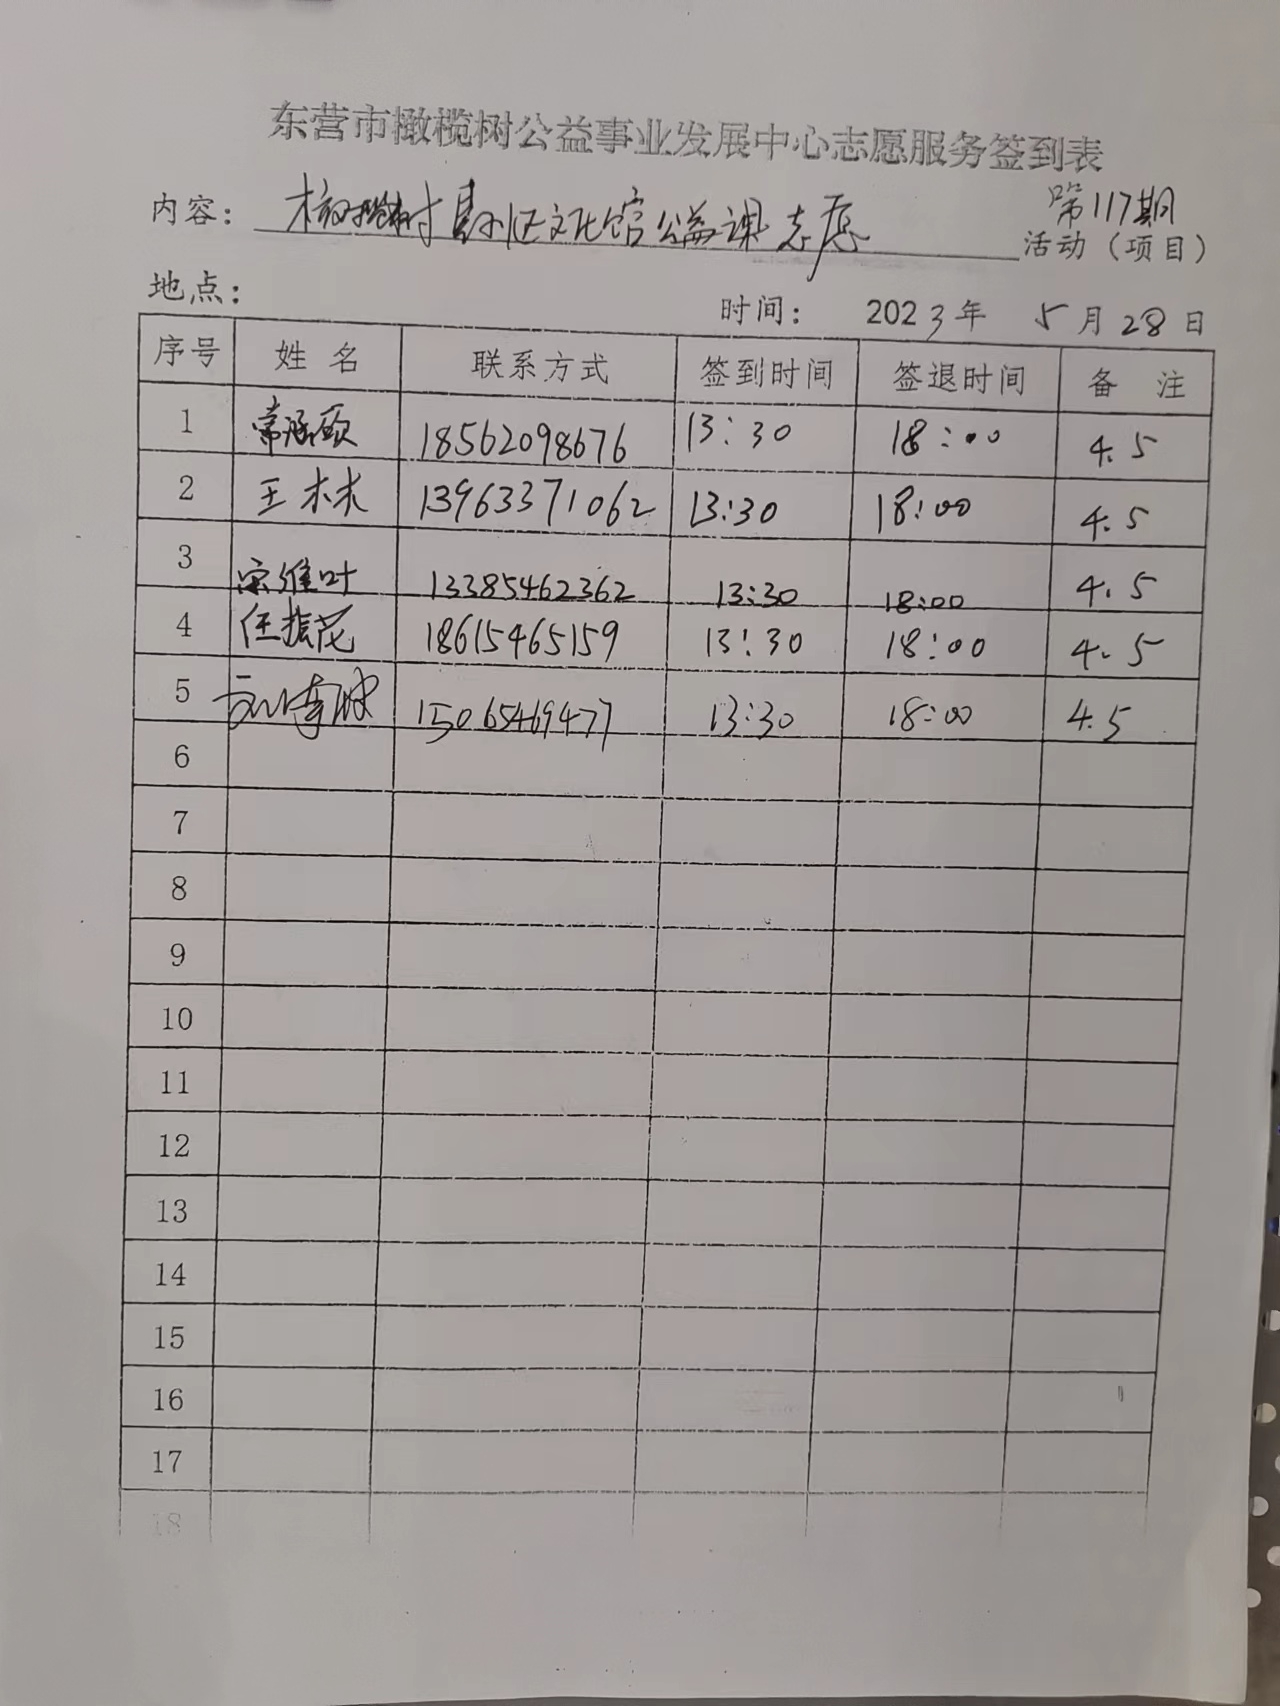 东营市橄榄树公益事业发展中心志愿服务签到表
第117期
内容： 橄榄树垦利区文化馆公益课志愿 活动（项目）
地点：
时间： 2023年 5月28日
序号 姓名 联系方式 签到时间 签退时间 备注
1 常 18562098676 13:30 18:00 4.5
2 王林 13963371062 13:30 18:00 4.5
3 宋维叶 13385462362 13:30 18:00 4.5
4 任振花 18615465159 13:30 18:00 4.5
5 15065469477 13:30 18:00 4.5
6
7
8
9
10
11
12
13
14
15
16
17
18